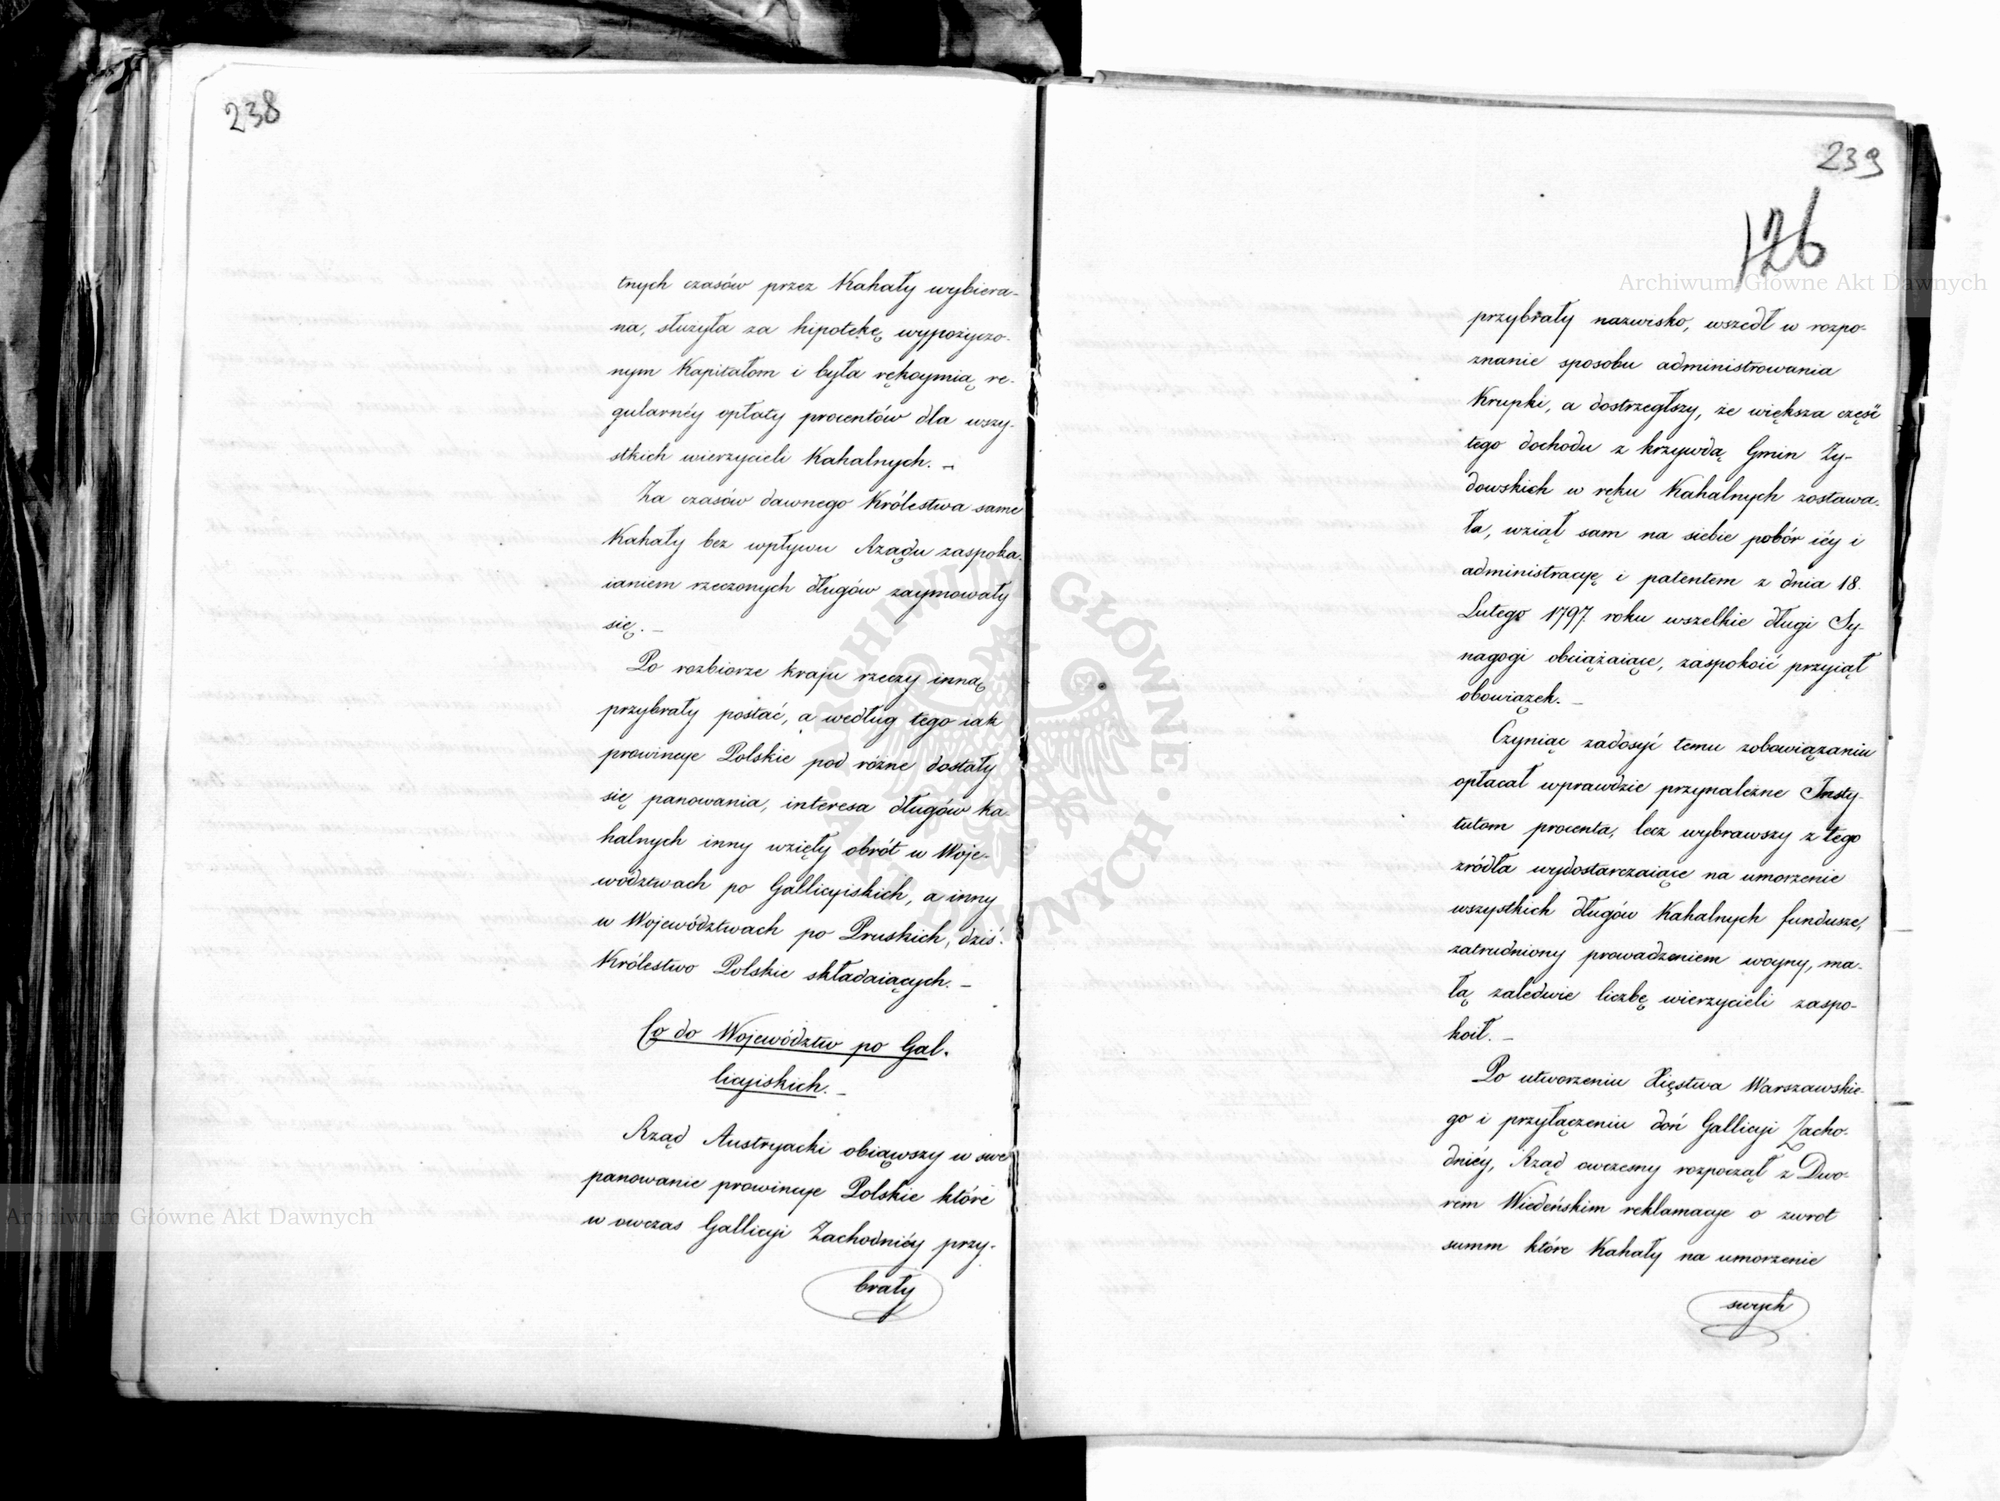 238
tnych czasów przez Kahały wybiera-
na, służyła za hipotekę wypożyczo-
nym Kapitałom i była rękoymią re-
gularnéy opłaty procentów dla wszy-
stkich wierzycieli Kahalnych. —
Za czasów dawnego Królestwa same
Kahały bez wpływu Rządu zaspoka-
ianiem rzeczonych długów zaymowały
się. —
Po rozbiorze kraju rzeczy inną
przybrały postać, a według tego iak
prowincye Polskie pod różne dostały
się panowania, interesa długów ka-
halnych inny wzięły obrót w Woje-
wodztwach po Gallicyiskich, a inny
w Województwach po Pruskich, dziś.
Królestwo Polskie składaiących. —
Co do Województw po Gal-
licyiskich. —
Rząd Austryacki obiąwszy w swe
panowanie prowincye Polskie które
w owczas Gallicyi Zachodniéy przy-
brały
239
126
przybrały nazwisko, wszedł w rozpo-
znanie sposobu administrowania
Krupki, a dostrzegłszy, że większa część
tego dochodu z krzywdą Gmin Ży-
dowskich w ręku Kahalnych zostawa-
ła, wziął sam na siebie pobór iéy i
administracyę i patentem z dnia 18.
Lutego 1797 roku wszelkie długi Sy-
nagogi obciążaiące, zaspokoić przyiął
obowiązek. —
Czyniąc zadosyć temu zobowiązaniu
opłacał wprawdzie przynależne Insty-
tutom procenta, lecz wybrawszy z tego
zródła wydostarczaiące na umorzenie
wszystkich długów Kahalnych fundusze,
zatrudniony prowadzeniem woyny, ma-
łą zaledwie liczbę wierzycieli zaspo-
koił. —
Po utworzeniu Xięstwa Warszawskie-
go i przyłączeniu doń Gallicyi Zacho-
dniéy, Rząd owczesny rozpoczął z Dwo-
rem Wiedeńskim reklamacye o zwrot
summ które Kahały na umorzenie
swych
Archiwum Główne Akt Dawnych
Archiwum Główne Akt Dawnych
ARCHIWUM GŁÓWNE AKT DAWNYCH